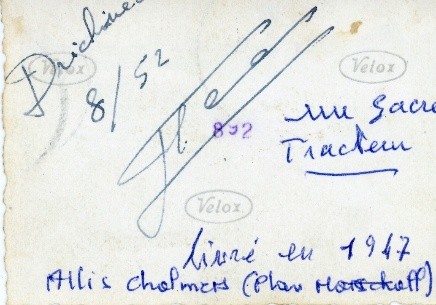 Velox
Velox
8/52
892
rue Sacré
Tracteur
Velox
livré en 1947
Allis chalmers (Plan Marschall)